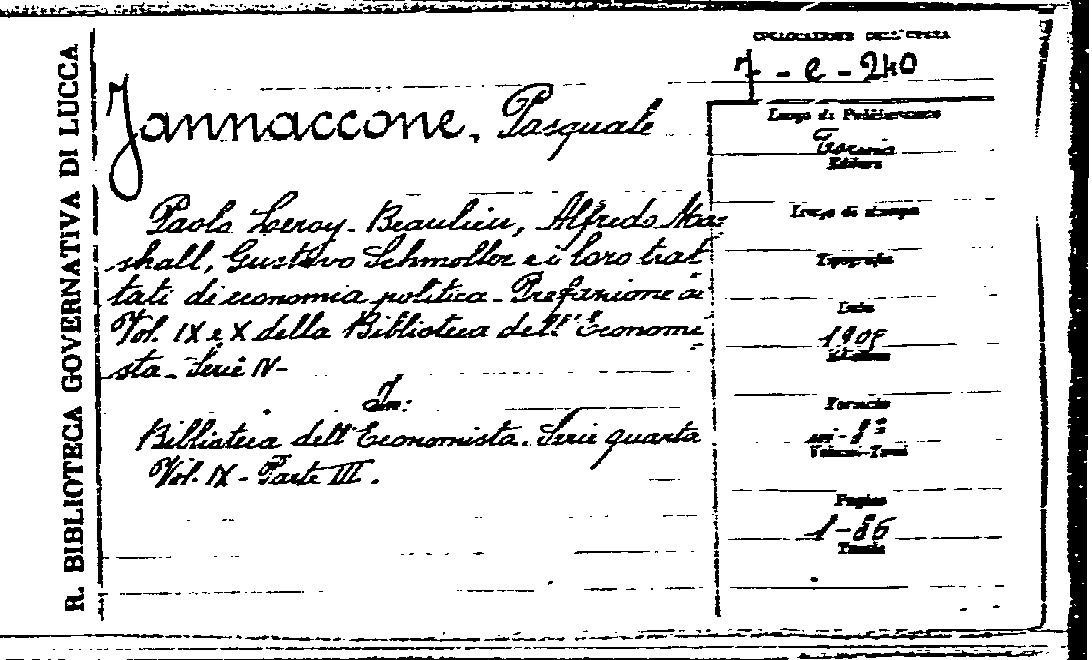 R. BIBLIOTECA GOVERNATIVA DI LUCCA
COLLOCAZIONE DELL'OPERA
7 - e - 240
Jannaccone, Pasquale
Paolo Leroy-Beaulieu, Alfredo Mar=
shall, Gustavo Schmoller e i loro trat
tati di economia politica - Prefazione ai
Vol. IX e X della Biblioteca dell'Economi
sta - Serie IV -
In:
Biblioteca dell'Economista. Serie quarta
Vol. IX - Parte III.
Luogo di Pubblicazione
Torino
Editore
Luogo di stampa
Tipografia
Data
Edizione
Formato
in-8º
Volumi-Tomi
Pagine
1-86
Tavole